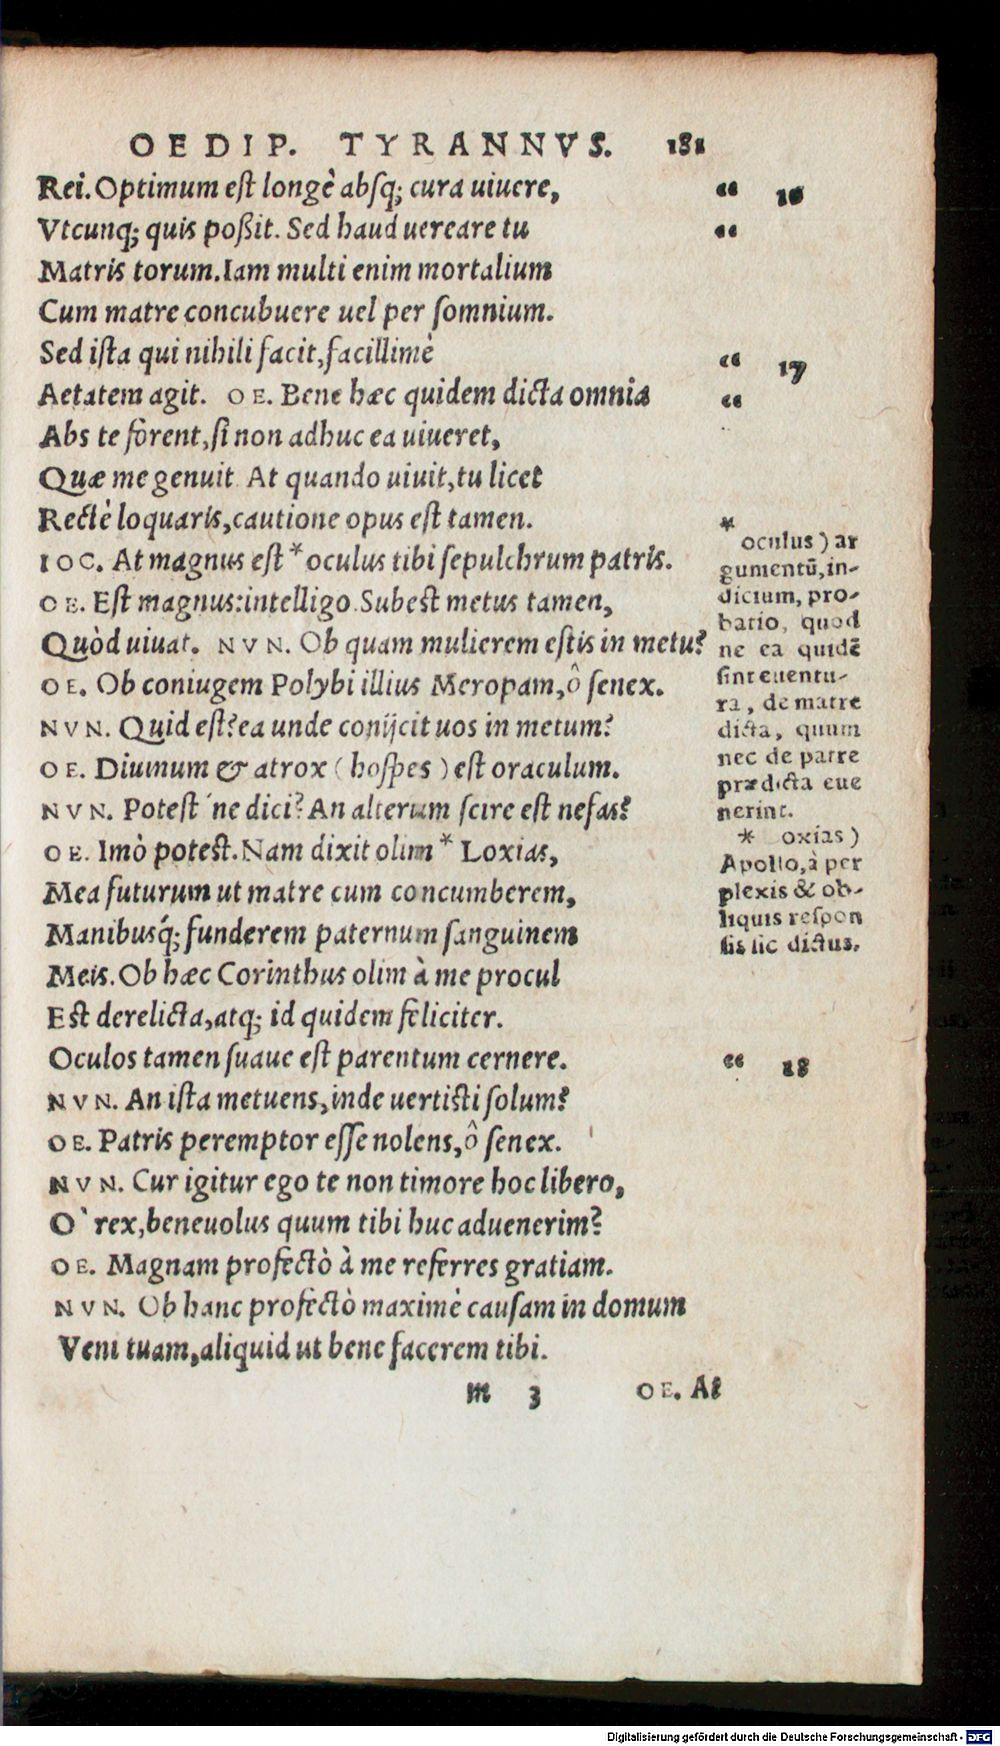 OEDIP. TYRANNVS. 181
Rei. Optimum est longè absq; cura uiuere, “ 16
Vtcunq; quis poßit. Sed haud uereare tu “
Matris torum. Iam multi enim mortalium
Cum matre concubuere uel per somnium.
Sed ista qui nihili facit, facillimè “ 17
Aetatem agit. OE. Bene hæc quidem dicta omnia “
Abs te forent, si non adhuc ea uiueret,
Quæ me genuit. At quando uiuit, tu licet
Rectè loquaris, cautione opus est tamen.
IOC. At magnus est * oculus tibi sepulchrum patris.
OE. Est magnus: intelligo. Subest metus tamen,
Quòd uiuat. NVN. Ob quam mulierem estis in metu?
OE. Ob coniugem Polybi illius Meropam, ô senex.
NVN. Quid est? ea unde conijcit uos in metum?
OE. Diuinum & atrox (hospes) est oraculum.
NVN. Potest ́ne dici? An alterum scire est nefas?
OE. Imò potest. Nam dixit olim * Loxias,
Mea futurum ut matre cum concumberem,
Manibusq́; funderem paternum sanguinem
Meis. Ob hæc Corinthus olim à me procul
Est derelicta, atq; id quidem feliciter.
Oculos tamen suaue est parentum cernere. “ 18
NVN. An ista metuens, inde uertisti solum?
OE. Patris peremptor esse nolens, ô senex.
NVN. Cur igitur ego te non timore hoc libero,
O` rex, beneuolus quum tibi huc aduenerim?
OE. Magnam profectò à me referres gratiam.
NVN. Ob hanc profectò maximè causam in domum
Veni tuam, aliquid ut bene facerem tibi.
m 3 OE. At
*
oculus) ar
gumentū, in-
dicium, pro-
batio, quod
ne ea quidē
sint euentu-
ra, de matre
dicta, quum
nec de patre
prædicta eue
nerint.
* oxias)
Apollo, à per
plexis & ob-
liquis respon
sis sic dictus.
Digitalisierung gefördert durch die Deutsche Forschungsgemeinschaft - DFG